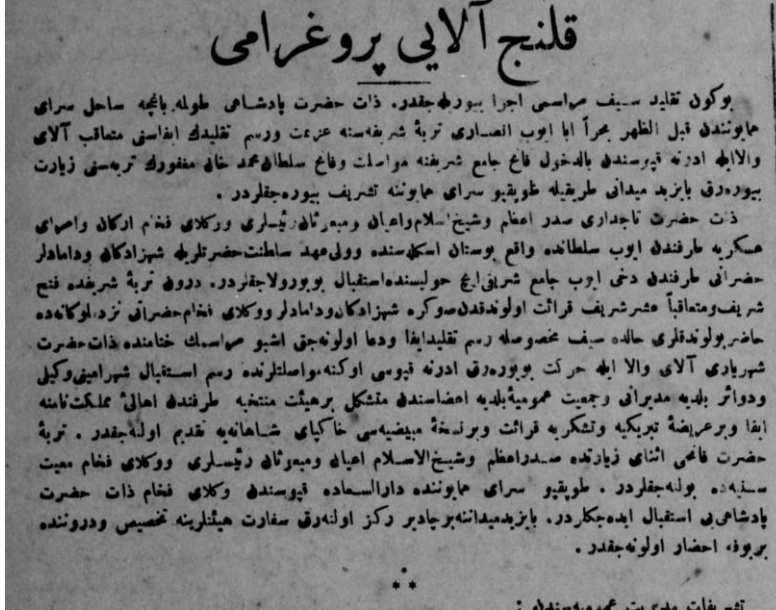 قلنج آلايی پروغرامی
بوكون تقليد سـيف مراسمی اجرا بيوريله‌جقدر. ذات حضرت پادشاهی طولمه باغچه ساحل سرای
همايونندن قبل الظهر بحراً ابا ايوب انصـاری تربهٔ شريفه‌سنه عزيمت ورسم تقليدك ايفاسنی متعاقب آلای
والاايله ادرنه قپوسندن بالدخول فاتح جامع شريفنه مواصلت وفاتح سلطان محمد خان مغفورك تربه‌سنی زيارت
بيوره‌رق بايزيد ميدانی طريقيله طوپقپو سرای همايوننه تشريف بيوره‌جقلردر .
ذات حضرت تاجداری صدر اعظم وشيخ‌اسلام واعيان ومبعوثان رئيسلری ووكلای فخام اركان وامرای
عسكريه طرفندن ايوب سلطانده واقع بوستان اسكله‌سنده وولی‌عهد سلطنت حضرتلريله شهزادكان ودامادلر
حضراتی طرفندن دخی ايوب جامع شريفی ايچ حوليسنده استقبال بويورولاجقلردر. درون تربهٔ شريفده فتح
شريف ومتعاقباً عشر شريف قرائت اولوندقدن صوكره شهزادكان ودامادلر ووكلای فخام حضراتی نزد ملوكانه‌ده
حاضر بولوندقلری حالده سيف مخصوصله رسم تقليد ايفا ودعا اولونه‌جق اشبو مراسمك ختامنده ذات حضرت
شهرياری آلای والا ايله حركت بويوره‌رق ادرنه قپوسی اوكنه مواصلتلرنده رسم اسـتقبال شهرامينی وكيلی
ودوائر بلديه مديرانی وجمعيت عموميهٔ بلديه اعضاسندن متشكل برهيئت منتخبه طرفندن اهالیٔ مملكت نامنه
ايفا وبرعريضهٔ تبريكيه وتشكريه قرائت وبرنسخهٔ مبيضه‌سی خاكپای شـاهانه‌يه تقديم اولنه‌جقدر . تربهٔ
حضرت فاتحی اثنای زيارتده صـدراعظم وشيخ‌الاسـلام اعيان ومبعوثان رئيسـلری ووكلای فخام معيت
سـنيه‌ده بولنه‌جقلردر . طوپقپو سرای همايوننده دارالسـعاده قپوسندن وكلای فخام ذات حضرت
پادشاهی‌يی استقبال ايده‌جكلردر. بايزيد ميداننه برچادير ركز اولنه‌رق سفارت هيئتلرينه تخصيص ودروننده
بربوفه احضار اولونه‌جقدر .
تشريفات مديريت عموميه‌سندن :